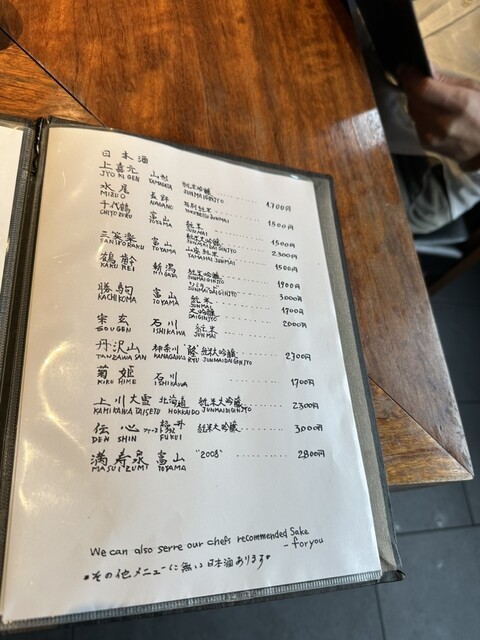 日本酒
上喜元 山形 純米吟醸 1,700円
JYO KI GEN YAMAGATA JUNMAIGINJYO
水尾 長野 特別純米 1500円
MIZUO NAGANO TOKUBETSU JUNMAI
千代鶴 富山 純米 1500円
CHIYO ZURU TOYAMA JUNMAI
純米大吟醸 2,300円
JUNMAI DAI GINJYO
三笑楽 富山 山廃純米 1500円
SANSHORAKU TOYAMA YAMAHAI JUNMAI
鶴齢 新潟 純米吟醸 1900円
KAKU REI NIIGATA JUNMAIGINJYO
3,000円
JUNMAIDAIGINJYO
勝駒 富山 純米 1700円
KACHI KOMA TOYAMA JUNMAI
大吟醸 2000円
DAIGINJYO
宗玄 石川 純米
SOUGEN ISHIKAWA JUNMAI
丹沢山 神奈川 純米大吟醸 2,300円
TANZAWA SAN KANAGAWA RYU JUNMAIDAIGINJYO
菊姫 石川 1700円
KIKU HIME ISHIKAWA
上川大雪 北海道 純米大吟醸 2300円
KAMIKAWA TAISETU HOKKAIDO JUNMAIDAIGINJYO
伝心 福井 純米大吟醸 3,000円
DEN SHIN FUKUI
満寿泉 富山 "2008" 2800円
MASUIZUMI TOYAMA
We can also serve our chefs recommended Sake
- for you
*その他メニューに無い日本酒あります*